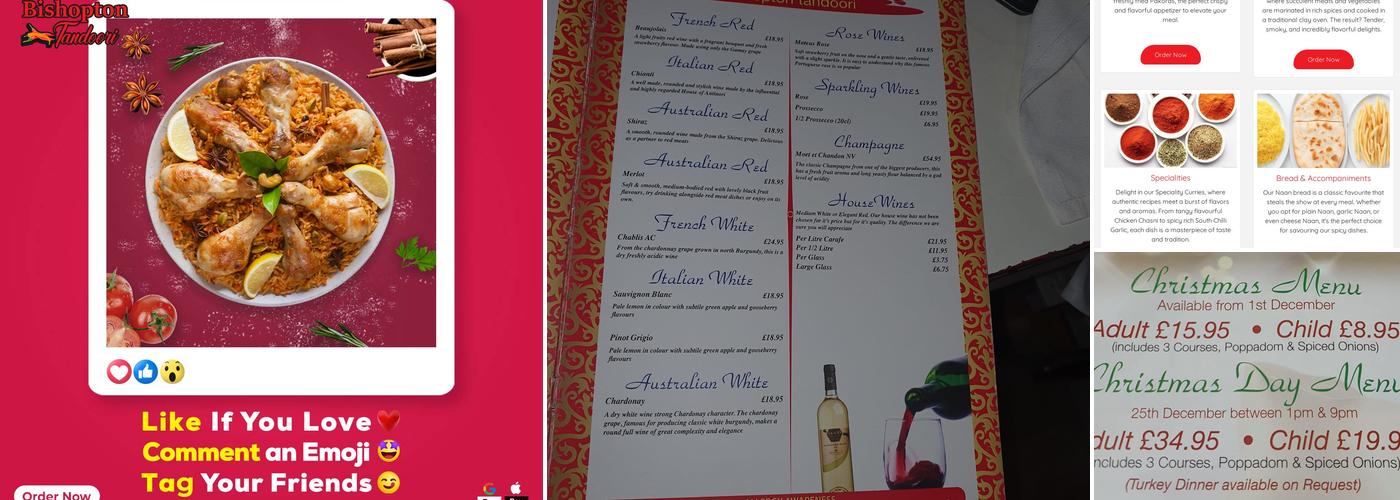 Bishopton
Tandoori
Like If You Love
Comment an Emoji
Tag Your Friends
Order Now
French Red
Beaujolais
£18.95
A light fruity red wine with a fragrant bouquet and fresh
strawberry flavour. Made using only the Gamay grape
Italian Red
Chianti
£18.95
A well made, rounded and stylish wine made by the influential
and highly regarded House of Antinori
Australian Red
Shiraz
£18.95
A smooth, rounded wine made from the Shiraz grape. Delicious
as a partner to red meats
Australian Red
Merlot
£18.95
Soft & smooth, medium-bodied red with lovely black fruit
flavours, try drinking alongside red meat dishes or enjoy on its
own.
French White
Chablis AC
£24.95
From the chardonnay grape grown in north Burgundy, this is a
dry freshly acidic wine
Italian White
Sauvignon Blanc
£18.95
Pale lemon in colour with subtle green apple and gooseberry
flavours
Pinot Grigio
£18.95
Pale lemon in colour with subtle green apple and gooseberry
flavours
Australian White
Chardonay
£18.95
A dry white wine strong Chardonay character. The chardonay
grape, famous for producing classic white burgundy, makes a
round full wine of great complexity and elegance
tandoori
Rose Wines
Mateus Rose
£18.95
Soft strawberry fruit on the nose and a gentle taste, enlivened
with a slight sparkle. It is easy to understand why this famous
Portuguese rose is so popular
Sparkling Wines
Rose
£19.95
Prossecco
£19.95
1/2 Prossecco (20cl)
£6.95
Champagne
Moet et Chandon NV
£54.95
The classic Champagne from one of the biggest producers, this
has a fresh fruit aroma and long yeasty flour balanced by a god
level of acidity
House Wines
Medium White or Elegant Red. Our house wine has not been
chosen for it's price but for it's quality. The difference we are
sure you will appreciate
Per Litre Carafe £21.95
Per 1/2 Litre £11.95
Per Glass £3.75
Large Glass £6.75
freshly fried Pakoras, the perfect crispy
and flavorful appetizer to elevate your
meal.
Order Now
where succulent meats and vegetables
are marinated in rich spices and cooked in
a traditional clay oven. The result? Tender,
smoky, and incredibly flavorful delights.
Order Now
Specialities
Delight in our Speciality Curries, where
authentic recipes meet a burst of flavors
and aromas. From tangy flavourful
Chicken Chasni to spicy rich South Chilli
Garlic, each dish is a masterpiece of taste
and tradition.
Bread & Accompaniments
Our Naan bread is a classic favourite that
steals the show at every meal. Whether
you opt for plain Naan, garlic Naan, or
even cheese Naan, it's the perfect choice
for savouring our spicy dishes.
Christmas Menu
Available from 1st December
Adult £15.95 • Child £8.95
(includes 3 Courses, Poppadom & Spiced Onions)
Christmas Day Menu
25th December between 1pm & 9pm
dult £34.95 • Child £19.9
ncludes 3 Courses, Poppadom & Spiced Onions)
(Turkey Dinner available on Request)